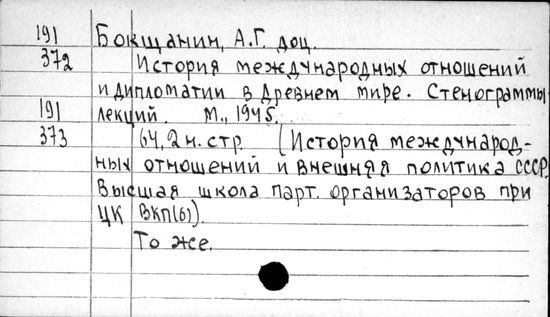 191 Бокщанин, А.Г. доц.
372 История международных отношений
и дипломатии в Древнем мире. Стенограммы
191 лекций. М., 1945.
373 64, 2 н. стр. (История международ-
ных отношений и внешняя политика СССР.
Высшая школа парт. организаторов при
ЦК ВКП(б)).
То же.